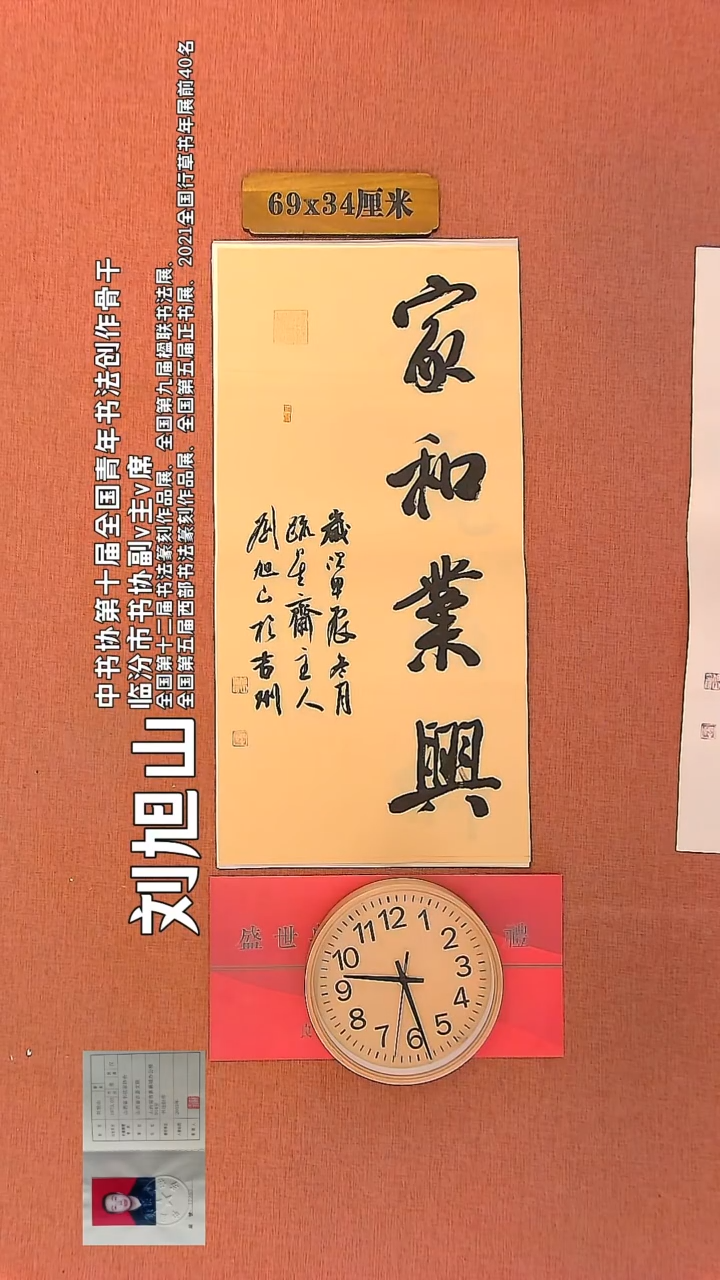 69x34厘米
家和業興
歲次甲辰冬月
疏星齋主人
劉旭山於吉州
刘旭山
中书协第十届全国青年书法创作骨干
临汾市书协副v主v席
全国第十二届书法篆刻作品展、全国第九届楹联书法展、
全国第五届西部书法篆刻作品展、全国第五届正书展、2021全国行草书年展前40名
盛世 禮
12
1
2
3
4
5
6
7
8
9
10
11